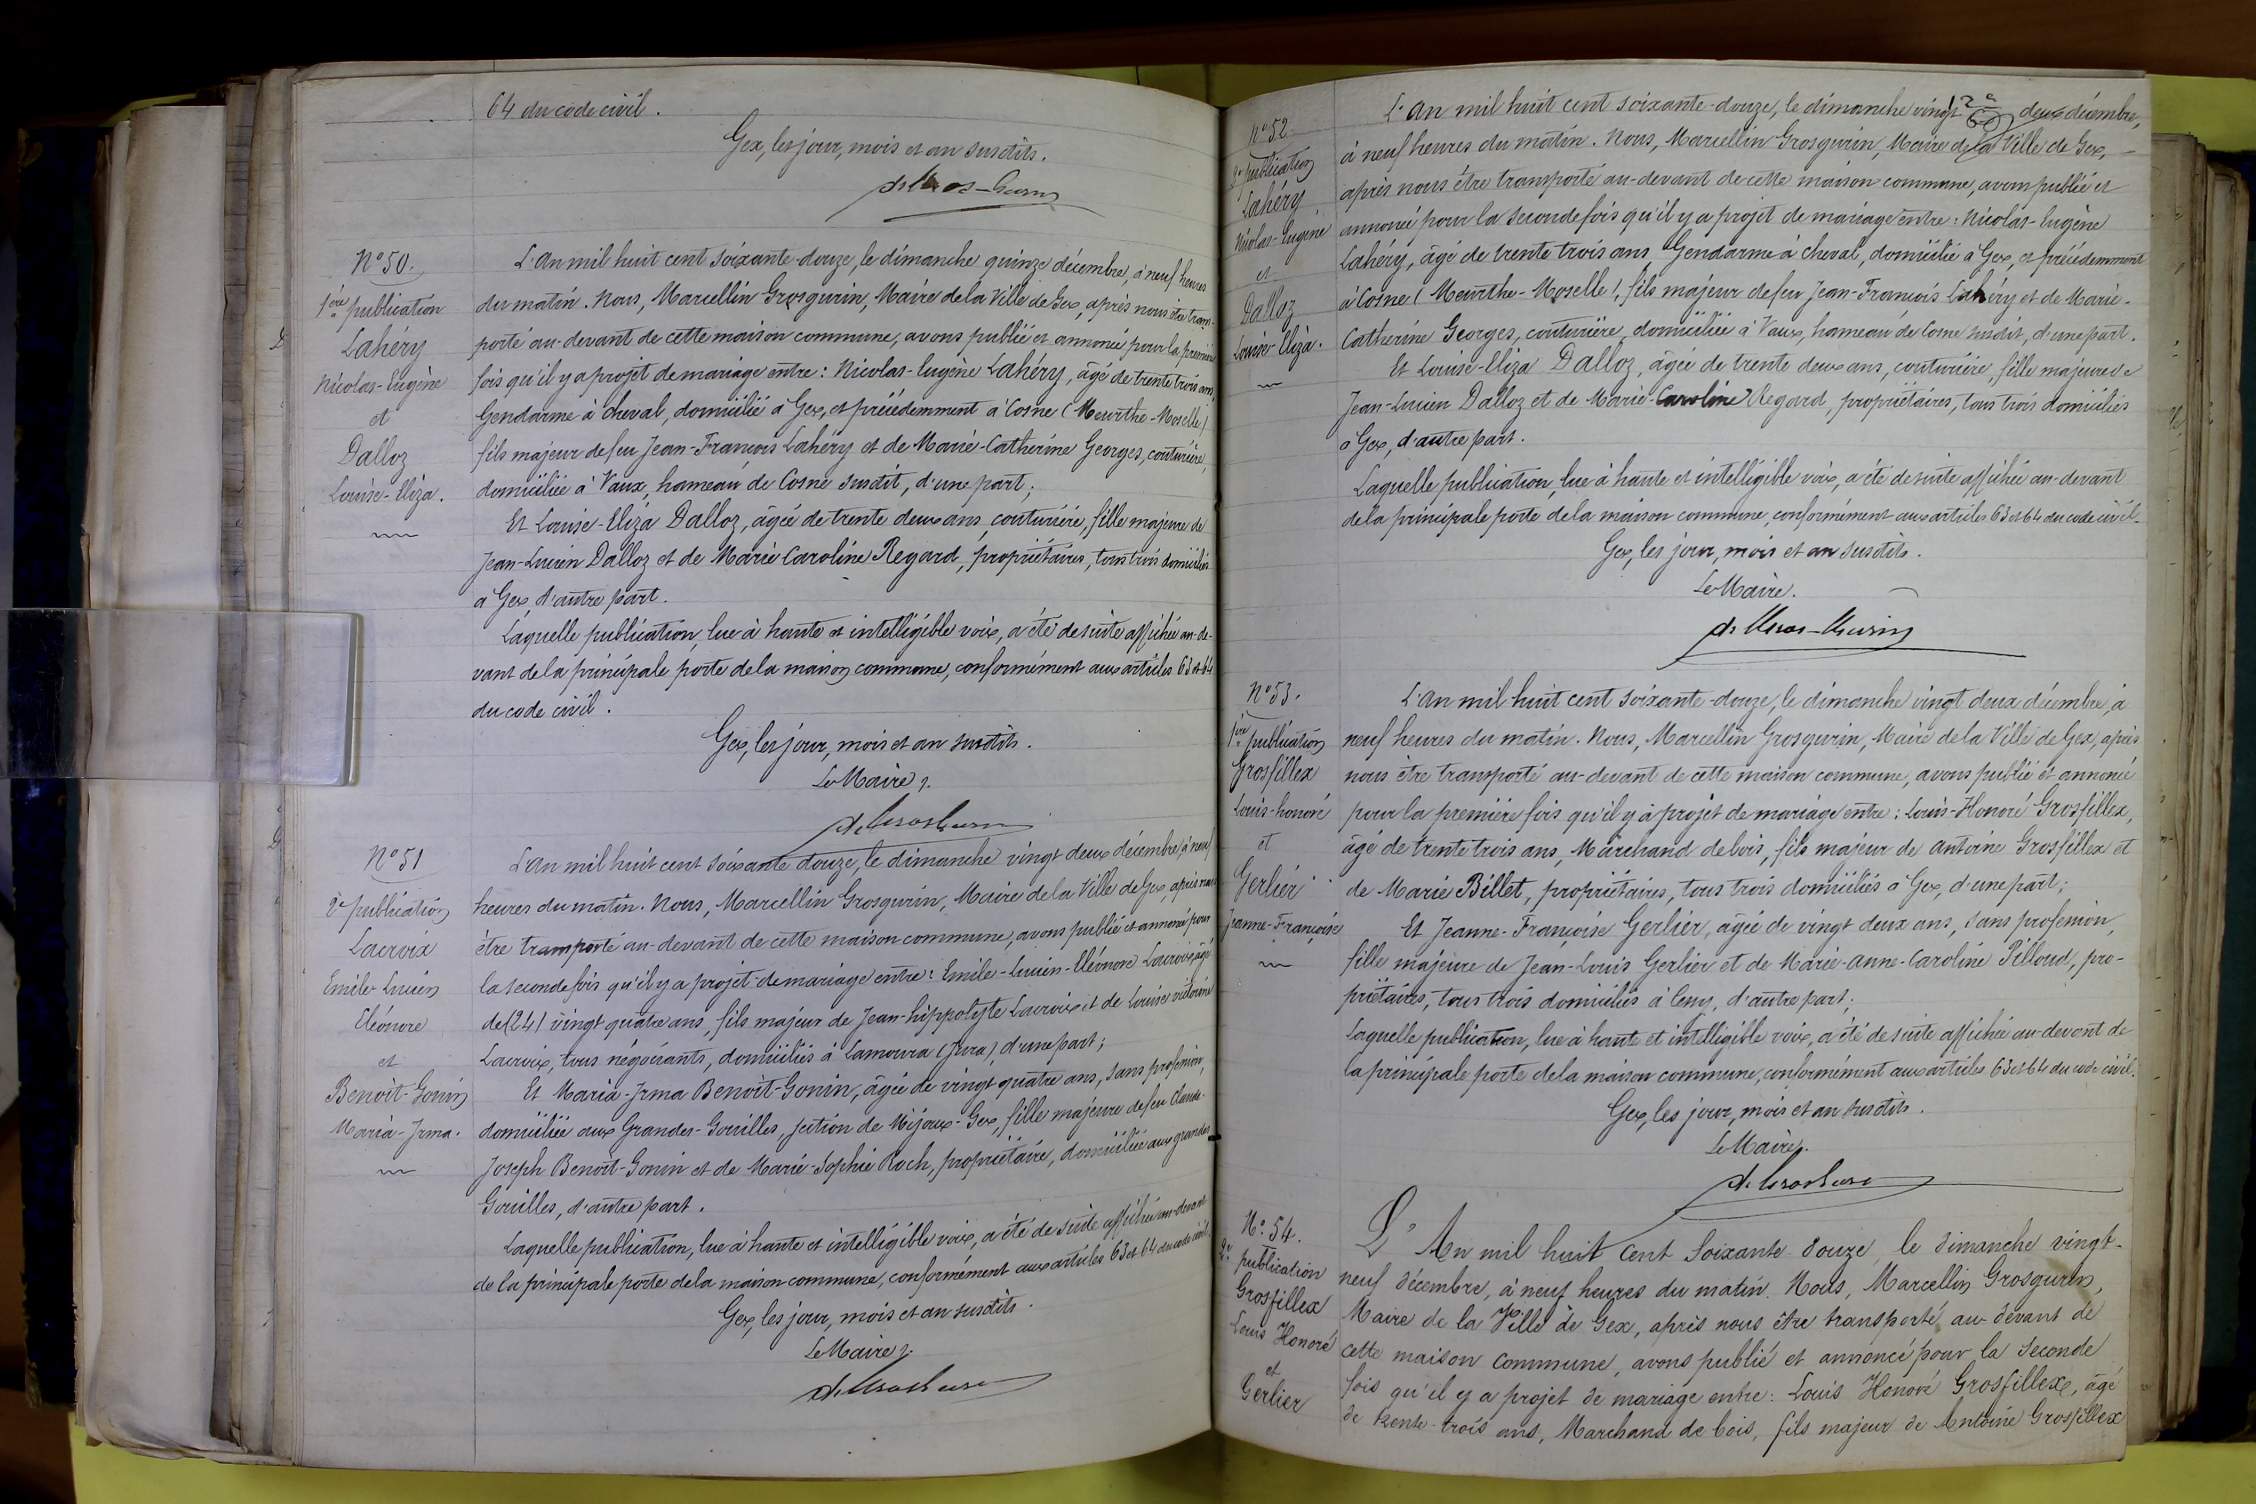 64 du code civil.
Gex, les jour, mois et an susdits.
N° 50.
1ère publication
Lahéry
Nicolas-Eugène
et
Dalloz
Louise-Eliza.
L'An mil huit cent soixante-douze, le dimanche quinze décembre, à neuf heures
du matin. Nous, Marcellin Grosgurin, Maire de la Ville de Gex, après nous être trans-
porté au-devant de cette maison commune, avons publié et annoncé pour la première
fois qu'il y a projet de mariage entre : Nicolas-Eugène Lahéry, âgé de trente trois ans,
Gendarme à cheval, domicilié à Gex, et précédemment à Cosne (Meurthe-Moselle)
fils majeur de feu Jean-François Lahéry et de Marie-Catherine Georges, couturière,
domiciliée à Vaux, hameau de Cosne susdit, d'une part;
Et Louise-Eliza Dalloz, âgée de trente deux ans, couturière, fille majeure de
Jean-Lucien Dalloz et de Marie Caroline Regard, propriétaires, tous trois domiciliés
à Gex, d'autre part.
Laquelle publication, lue à haute et intelligible voix, a été de suite affichée au-de-
vant de la principale porte de la maison commune, conformément aux articles 63 et 64
du code civil.
Gex, les jour, mois et an susdits.
Le Maire,
N° 51
2e publication
Lacroix
Emile-Lucien
Eléonore
et
Benoit-Gonin
Maria-Irma.
L'An mil huit cent soixante douze, le dimanche vingt deux décembre, à neuf
heures du matin. Nous, Marcellin Grosgurin, Maire de la Ville de Gex, après nous
être transporté au-devant de cette maison commune, avons publié et annoncé pour
la seconde fois qu'il y a projet de mariage entre : Emile-Lucien-Eléonore Lacroix, âgé
de (24) vingt quatre ans, fils majeur de Jean-hippolyte Lacroix et de Louise victorine
Lacroix, tous négociants, domiciliés à Lamoura (Jura), d'une part;
Et Maria-Irma Benoit-Gonin, âgée de vingt quatre ans, sans profession,
domiciliée aux Grandes-Gouilles, section de Mijoux-Gex, fille majeure de feu Claude-
Joseph Benoit-Gonin et de Marie-Sophie Roch, propriétaire, domiciliée aux grandes
Gouilles, d'autre part.
Laquelle publication, lue à haute et intelligible voix, a été de suite affichée au-devant
de la principale porte de la maison commune, conformément aux articles 63 et 64 du code civil.
Gex, les jour, mois et an susdits.
Le Maire,
N° 52
2e publication
Lahéry
Nicolas-Eugène
et
Dalloz
Louise-Eliza.
L'An mil huit cent soixante-douze, le dimanche vingt deux décembre,
à neuf heures du matin. Nous, Marcellin Grosgurin, Maire de la Ville de Gex,
après nous être transporté au-devant de cette maison commune, avons publié et
annoncé pour la seconde fois qu'il y a projet de mariage entre : Nicolas-Eugène
Lahéry, âgé de trente trois ans Gendarme à cheval, domicilié à Gex, et précédemment
à Cosne (Meurthe-Moselle), fils majeur de feu Jean-François Lahéry et de Marie-
Catherine Georges, couturière, domiciliée à Vaux, hameau de Cosne susdit, d'une part.
Et Louise-Eliza Dalloz, âgée de trente deux ans, couturière, fille majeure de
Jean-Lucien Dalloz et de Marie-Caroline Regard, propriétaires, tous trois domiciliés
à Gex, d'autre part.
Laquelle publication, lue à haute et intelligible voix, a été de suite affichée au-devant
de la principale porte de la maison commune, conformément aux articles 63 et 64 du code civil.
Gex, les jour, mois et an susdits.
Le Maire.
N° 53.
1ère publication
Grosfillex
Louis-honoré
et
Gerlier
Jeanne-Françoise
L'An mil huit cent soixante-douze, le dimanche vingt deux décembre, à
neuf heures du matin. Nous, Marcellin Grosgurin, Maire de la Ville de Gex, après
nous être transporté au-devant de cette maison commune, avons publié et annoncé
pour la première fois qu'il y a projet de mariage entre : Louis-Honoré Grosfillex,
âgé de trente trois ans, Marchand de bois, fils majeur de Antoine Grosfillex et
de Marie Billet, propriétaires, tous trois domiciliés à Gex, d'une part;
Et Jeanne-Françoise Gerlier, âgée de vingt deux ans, sans profession,
fille majeure de Jean-Louis Gerlier et de Marie-Anne-Caroline Pilloud, pro-
priétaires, tous trois domiciliés à Cessy, d'autre part;
Laquelle publication, lue à haute et intelligible voix, a été de suite affichée au-devant de
la principale porte de la maison commune, conformément aux articles 63 et 64 du code civil.
Gex, les jour, mois et an susdits.
Le Maire,
N° 54.
2e publication
Grosfillex
Louis Honoré
et
Gerlier
L'An mil huit cent Soixante douze, le dimanche vingt-
neuf décembre, à neuf heures du matin. Nous, Marcellin Grosgurin,
Maire de la Ville de Gex, après nous être transporté au-devant de
cette maison commune, avons publié et annoncé pour la seconde
fois qu'il y a projet de mariage entre : Louis Honoré Grosfillex, âgé
de trente-trois ans, Marchand de bois, fils majeur de Antoine Grosfillex